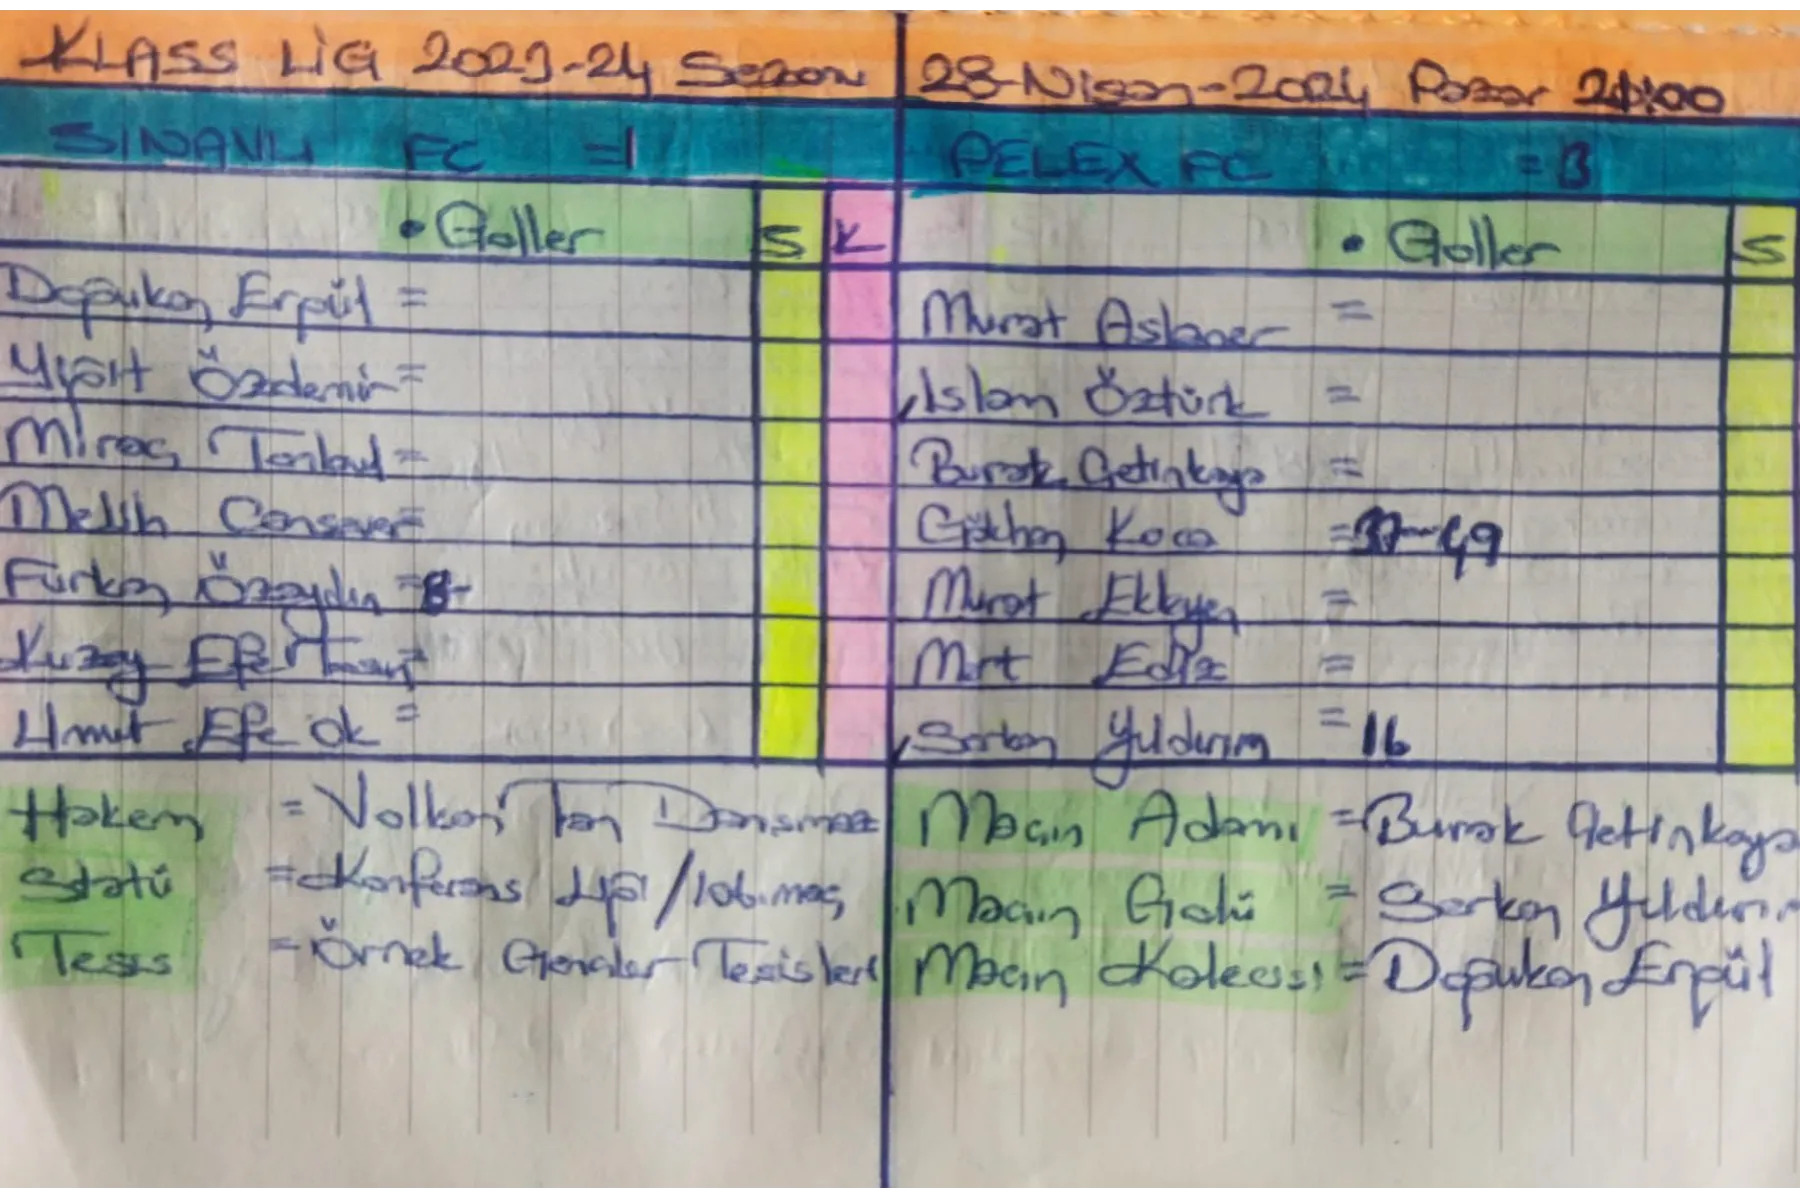 KLASS LİG 2023-24 Sezon
28-Nisan-2024 Pazar 20:00
SINAVLI FC =1
PELEX FC = 3
• Goller S K
• Goller S
Doğukan Ergül =
Murat Aslaner =
Yiğit Özdemir =
İslam Öztürk =
Miraç Tonbul =
Burak Çetinkaya =
Melih Cansever =
Gökhan Koca =37-49
Furkan Özaydın =8-
Murat Ekkayen =
Kuzay Efe =
Mrt Ediz =
Umut Efe Ok =
Serkan Yıldırım = 16
Hakem = Volkan Tan Dansmaz
Maçın Adamı = Burak Çetinkaya
Statü = Konferans Ligi / 106.maç
Maçın Golü = Serkan Yıldırım
Tesis = Örnek Gençler Tesisleri
Maçın Kalecisi = Doğukan Ergül